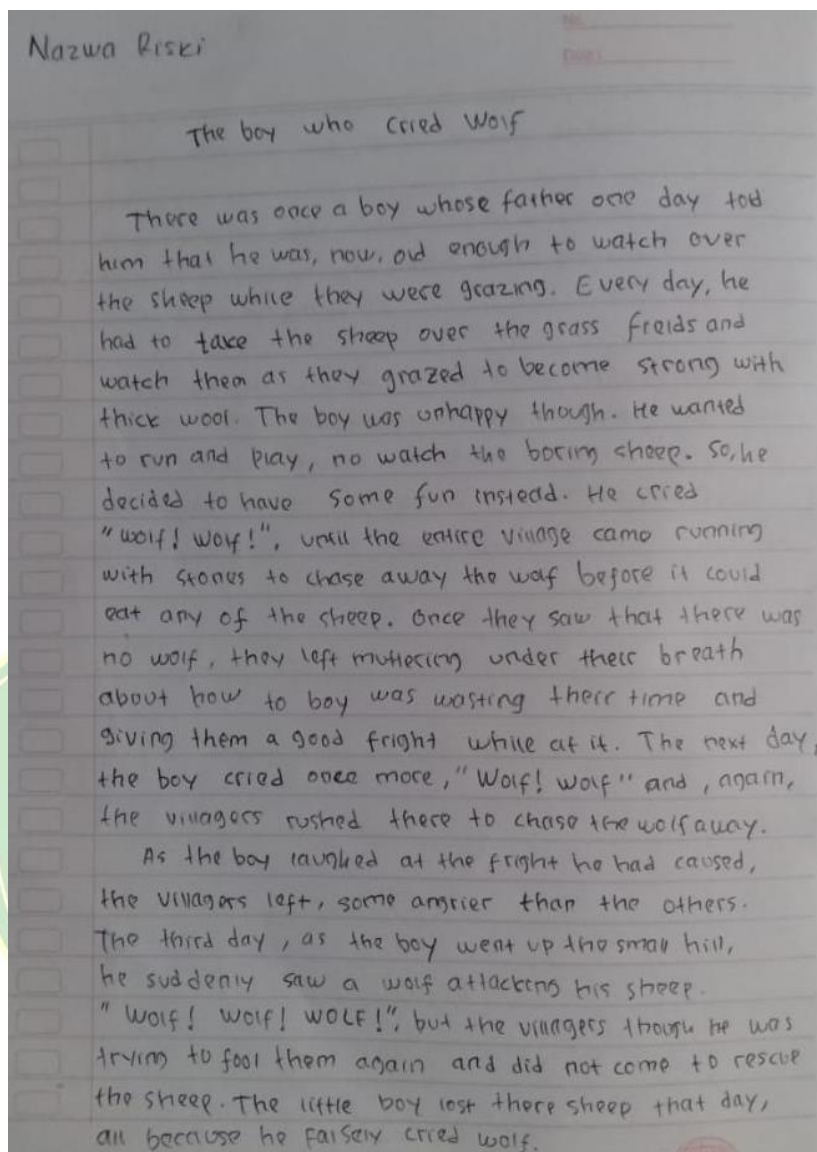 NO.
DATE:
Nazwa Riski
The boy who cried Wolf
There was once a boy whose father one day told
him that he was, now, old enough to watch over
the sheep while they were grazing. Every day, he
had to take the sheep over the grass freids and
watch them as they grazed to become strong with
thick wool. The boy was unhappy though. He wanted
to run and play, no watch the boring sheep. So, he
decided to have some fun instead. He cried
"wolf! wolf!", until the entire village came running
with stones to chase away the wolf before it could
eat any of the sheep. Once they saw that there was
no wolf, they left muttering under their breath
about how to boy was wasting their time and
giving them a good fright while at it. The next day,
the boy cried once more, "Wolf! wolf" and, again,
the villagers rushed there to chase the wolf away.
As the boy laughed at the fright he had caused,
the villagers left, some angrier than the others.
The third day, as the boy went up the small hill,
he suddenly saw a wolf attacking his sheep.
"Wolf! wolf! WOLF!", but the villagers though he was
trying to fool them again and did not come to rescue
the sheep. The little boy lost there sheep that day,
all because he falsely cried wolf.